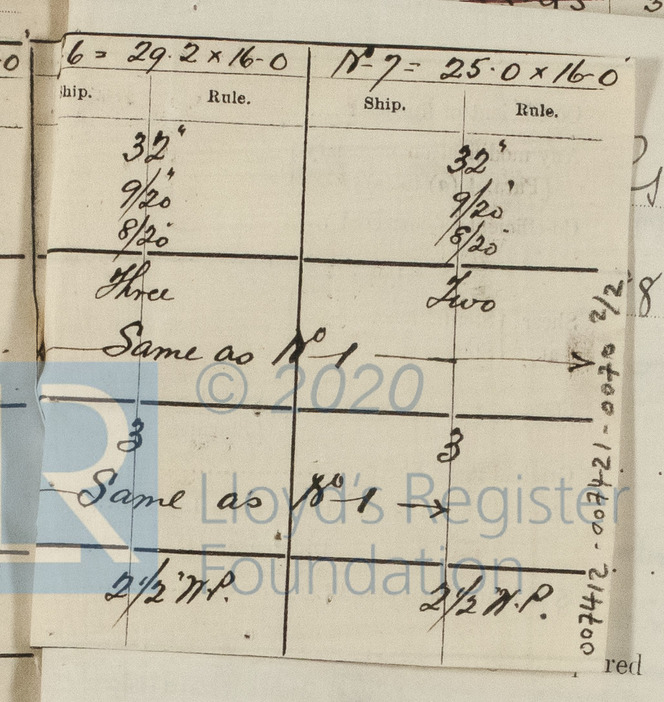 6 = 29.2 × 16-0
Nº 7 = 25.0 × 16-0
hip. Rule. Ship. Rule.
32" 32"
9/20" 9/20"
8/20" 8/20"
Three Two
Same as Nº 1
3 3
Same as Nº 1 →
2 1/2" W.P. 2 1/2 W.P.
007412-007421-0070 2/2
8
red
© 2020
Lloyd's Register
Foundation